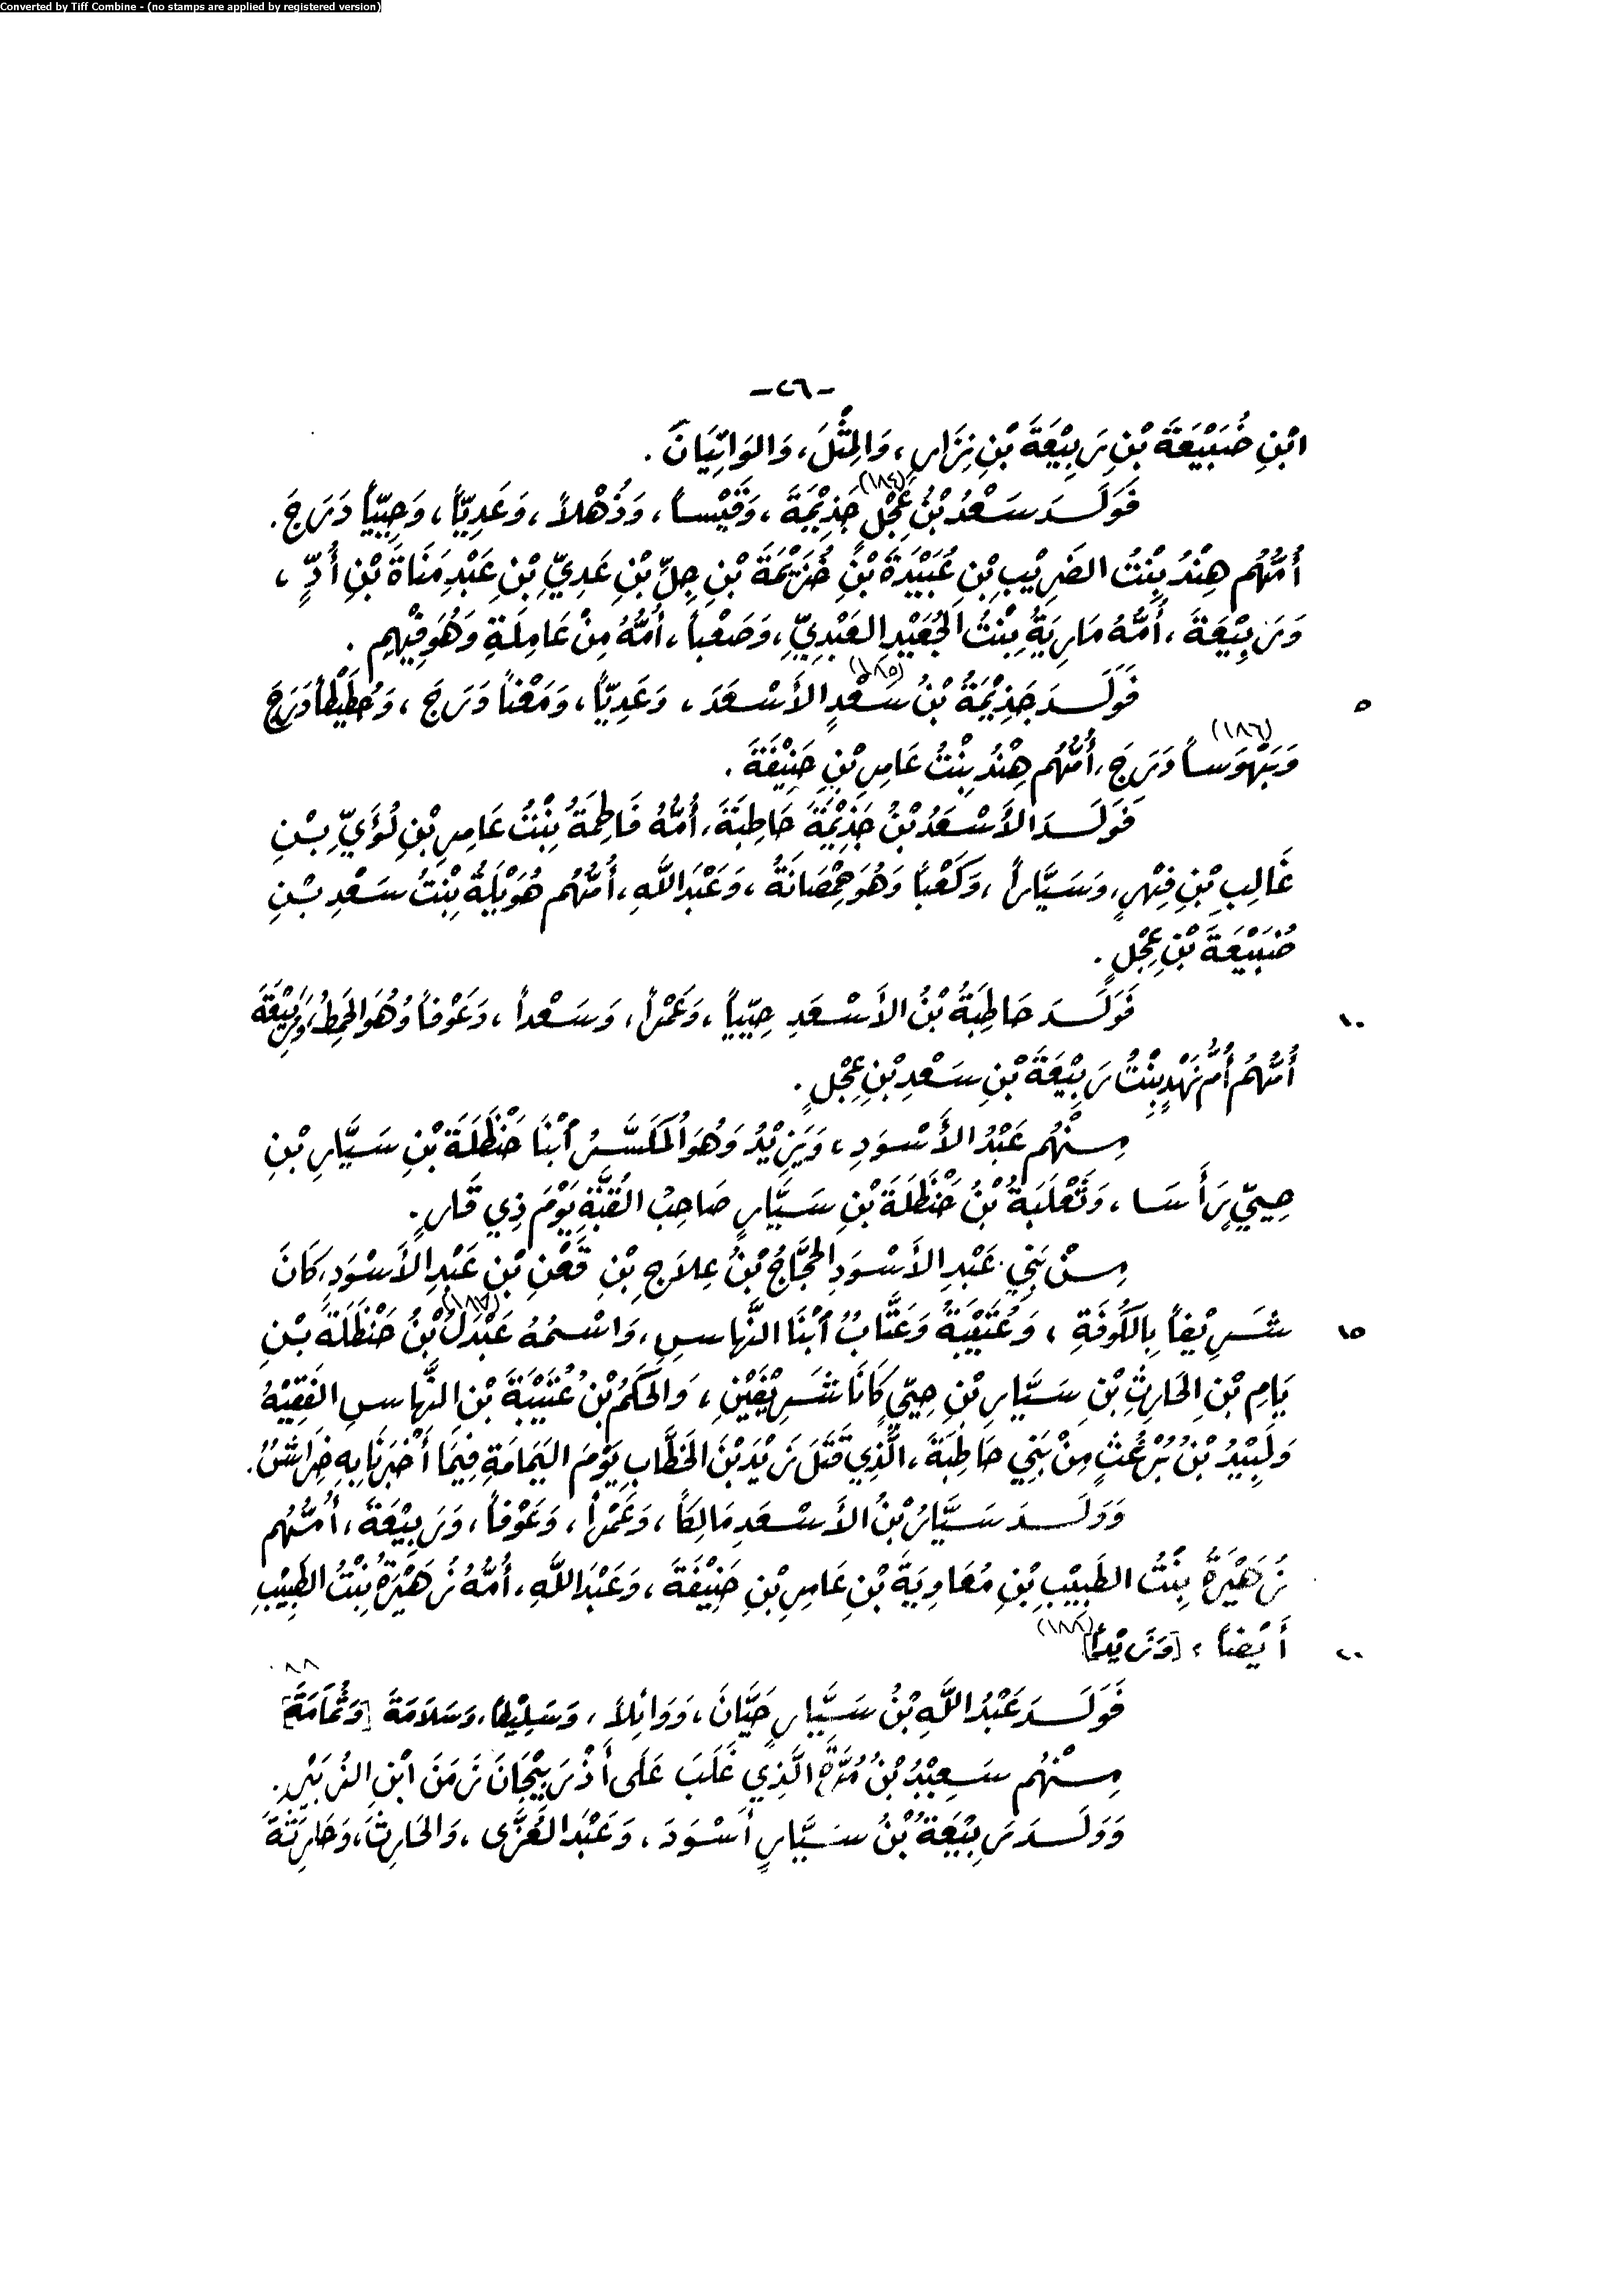 Converted by Tiff Combine - (no stamps are applied by registered version)
-٢٦-
ابْنِ ضُبَيْعَةَ بْنِ رَبِيْعَةَ بْنِ نِزَارٍ، وَالمِثْلَ، وَالوَاثِيَانَ.
فَوَلَدَ سَعْدُ بْنُ عِجْلٍ (١٨٤) جَذِيْمَةَ، وَقَيْساً، وَذُهْلاً، وَعَدِيّاً، وَحِيِيّاً دَرَجَ.
أُمُّهُم هِنْدُ بِنْتُ الضَرِيْبِ بْنِ عُبَيْدَةَ بْنِ خُزَيْمَةَ بْنِ جِلِّ بْنِ عَدِيِّ بْنِ عَبْدِ مَنَاةَ بْنِ أُدٍّ،
وَرَبِيْعَةَ، أُمُّهُ مَارِيَةُ بِنْتُ الجُعَيْدِ العَبْدِيِّ، وَصَعْباً، أُمُّهُ مِنْ عَامِلَةِ وَهُوَ فِيْهِم.
٥ فَوَلَدَ جَذِيْمَةُ بْنُ سَعْدٍ (١٨٥) الأَسْعَدَ، وَعَدِيّاً، وَمَعْناً دَرَجَ، وَحُطَيْطاً دَرَجَ
وَبَهْوَساً (١٨٦) دَرَجَ، أُمُّهُم هِنْدُ بِنْتُ عَامِرِ بْنِ حَنِيْفَةَ.
فَوَلَدَ الأَسْعَدُ بْنُ جَذِيْمَةَ حَاطِبَةَ، أُمُّهُ فَاطِمَةُ بِنْتُ عَامِرِ بْنِ لُؤَيِّ بْنِ
غَالِبِ بْنِ فِهْرٍ، وَسَيَّاراً، وَكَعْباً وَهُوَ حِمْصَانَةُ، وَعَبْدَ اللَّهِ، أُمُّهُم هُوَيْلَةُ بِنْتُ سَعْدِ بْنِ
ضُبَيْعَةَ بْنِ عِجْلٍ.
١٠ فَوَلَدَ حَاطِبَةُ بْنُ الأَسْعَدِ حِيِيّاً، وَعَمْراً، وَسَعْداً، وَعَوْفاً وَهُوَ الحَمِطُ، وَرَبِيْعَةَ
أُمُّهُمُ أُمُّ نَهْدٍ بِنْتُ رَبِيْعَةَ بْنِ سَعْدِ بْنِ عِجْلٍ.
مِنْهُم عَبْدُ الأَسْوَدِ، وَيَزِيْدُ وَهُوَ المُكَسَّرُ ابْنَا حَنْظَلَةَ بْنِ سَيَّارِ بْنِ
حِيِيٍّ رَأَسَا، وَثَعْلَبَةُ بْنُ حَنْظَلَةَ بْنِ سَيَّارٍ صَاحِبُ القُبَّةِ يَوْمَ ذِي قَارٍ.
مِنْ بَنِي عَبْدِ الأَسْوَدِ الحَجَّاجُ بْنُ عِلاَجِ بْنِ قَعْنِ بْنِ عَبْدِ الأَسْوَدِ، كَانَ
١٥ شَرِيْفاً بِالكُوفَةِ، وَعُتَيْبَةُ وَعَتَّابٌ ابْنَا النَّهاسِ، وَاسْمُهُ عَبْدَلُ (١٨٧) بْنُ حَنْظَلَةَ بْنِ
يَامِ بْنِ الحَارِثِ بْنِ سَيَّارِ بْنِ حِيِيٍّ كَانَا شَرِيْفَيْنِ، وَالحَكَمُ بْنُ عُتَيْبَةَ بْنِ النَّهاسِ الفَقِيْهُ
وَلَبِيْدُ بْنُ بُرْغُثٍ مِنْ بَنِي حَاطِبَةَ، الَّذِي قَتَلَ زَيْدَ بْنَ الخَطَّابِ يَوْمَ اليَمَامَةِ فِيْمَا أَخْبَرَنَا بِهِ خِرَاشٌ.
وَوَلَدَ سَيَّارُ بْنُ الأَسْعَدِ مَالِكاً، وَعَمْراً، وَعَوْفاً، وَرَبِيْعَةَ، أُمُّهُم
زَهَيْرَةُ بِنْتُ الطَبِيْبِ بْنِ مُعَاوِيَةَ بْنِ عَامِرِ بْنِ حَنِيْفَةَ، وَعَبْدَ اللَّهِ، أُمُّهُ زَهَيْرَةُ بِنْتُ الطَبِيْبِ
٢٠ أَيْضاً، [وَزَيْداً] (١٨٨)
فَوَلَدَ عَبْدُ اللَّهِ بْنُ سَيَّارٍ حَيَّانَ، وَوَائِلاً، وَسَلِيْطاً، وَسَلَامَةَ [وَثُمَامَةَ]
مِنْهُم سَعِيْدُ بْنُ مُرَّةَ الَّذِي غَلَبَ عَلَى أَذْرَبِيْجَانَ زَمَنَ ابْنِ الزُبَيْرِ.
وَوَلَدَ رَبِيْعَةُ بْنُ سَيَّارٍ أَسْوَدَ، وَعَبْدَ العُزَّى، وَالحَارِثَ، وَحَارِثَةَ